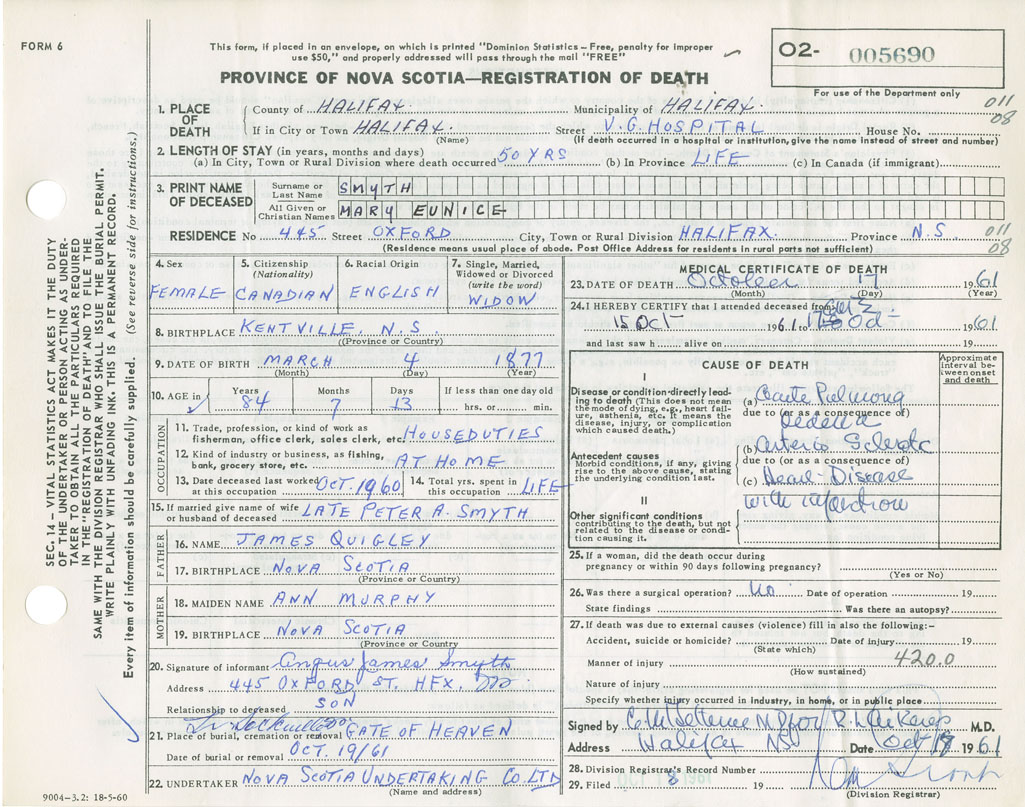 FORM 6
This form, if placed in an envelope, on which is printed "Dominion Statistics—Free, penalty for improper
use $50," and properly addressed will pass through the mail "FREE"
O2- 005690
PROVINCE OF NOVA SCOTIA—REGISTRATION OF DEATH
For use of the Department only
011
08
1. PLACE OF DEATH
County of HALIFAX. Municipality of HALIFAX.
If in City or Town HALIFAX. Street V.G. HOSPITAL House No.
(Name) (If death occurred in a hospital or institution, give the name instead of street and number)
2. LENGTH OF STAY (in years, months and days)
(a) In City, Town or Rural Division where death occurred 50 YRS (b) In Province LIFE (c) In Canada (if immigrant)
3. PRINT NAME OF DECEASED
Surname or Last Name SMYTH
All Given or Christian Names MARY EUNICE
RESIDENCE No 445 Street OXFORD City, Town or Rural Division HALIFAX. Province N.S
(Residence means usual place of abode. Post Office Address for residents in rural parts not sufficient)
011
08
4. Sex
FEMALE
5. Citizenship
(Nationality)
CANADIAN
6. Racial Origin
ENGLISH
7. Single, Married,
Widowed or Divorced
(write the word)
WIDOW
8. BIRTHPLACE KENTVILLE, N.S.
(Province or Country)
9. DATE OF BIRTH MARCH 4 1877
(Month) (Day) (Year)
10. AGE in
Years Months Days If less than one day old
84 7 13 hrs. or min.
OCCUPATION
11. Trade, profession, or kind of work as
fisherman, office clerk, sales clerk, etc. HOUSEDUTIES
12. Kind of industry or business, as fishing,
bank, grocery store, etc. AT HOME
13. Date deceased last worked
at this occupation OCT. 1960
14. Total yrs. spent in
this occupation LIFE
15. If married give name of wife
or husband of deceased LATE PETER A. SMYTH
FATHER
16. NAME JAMES QUIGLEY
17. BIRTHPLACE NOVA SCOTIA
(Province or Country)
MOTHER
18. MAIDEN NAME ANN MURPHY
19. BIRTHPLACE NOVA SCOTIA
(Province or Country)
20. Signature of informant Angus James Smyth
Address 445 OXFORD ST. HFX,
Relationship to deceased SON
21. Place of burial, cremation or removal GATE OF HEAVEN
Date of burial or removal OCT. 19/61
22. UNDERTAKER NOVA SCOTIA UNDERTAKING CO. LTD
(Name and address)
MEDICAL CERTIFICATE OF DEATH
23. DATE OF DEATH October 17 1961
(Month) (Day) (Year)
24. I HEREBY CERTIFY that I attended deceased from
15 Oct 1961 to 17 Oct 1961
and last saw h alive on 19
CAUSE OF DEATH
Approximate
interval be-
tween onset
and death
I
Disease or condition directly lead-
ing to death (This does not mean
the mode of dying, e.g., heart fail-
ure, asthenia, etc. It means the
disease, injury, or complication
which caused death.)
(a) Acute Pulmonary
due to (or as a consequence of)
Oedema
Antecedent causes
Morbid conditions, if any, giving
rise to the above cause, stating
the underlying condition last.
(b) Arterio Sclerotic
due to (or as a consequence of)
(c) Heart Disease
with infarction
II
Other significant conditions
contributing to the death, but not
related to the disease or condi-
tion causing it.
25. If a woman, did the death occur during
pregnancy or within 90 days following pregnancy?
(Yes or No)
26. Was there a surgical operation? No Date of operation 19
State findings Was there an autopsy?
27. If death was due to external causes (violence) fill in also the following:—
Accident, suicide or homicide? Date of injury 19
(State which)
420.0
Manner of injury
(How sustained)
Nature of injury
Specify whether injury occurred in industry, in home, or in public place
Signed by M.D.
Address Halifax NS Date Oct 1961
28. Division Registrar's Record Number
29. Filed 19
(Division Registrar)
SEC. 14 – VITAL STATISTICS ACT MAKES IT THE DUTY
OF THE UNDERTAKER OR PERSON ACTING AS UNDER-
TAKER TO OBTAIN ALL THE PARTICULARS REQUIRED
IN THE "REGISTRATION OF DEATH" AND TO FILE THE
SAME WITH THE DIVISION REGISTRAR WHO SHALL ISSUE THE BURIAL PERMIT.
WRITE PLAINLY WITH UNFADING INK. THIS IS A PERMANENT RECORD.
Every item of information should be carefully supplied. (See reverse side for instructions.)
9004—3.2: 18-5-60